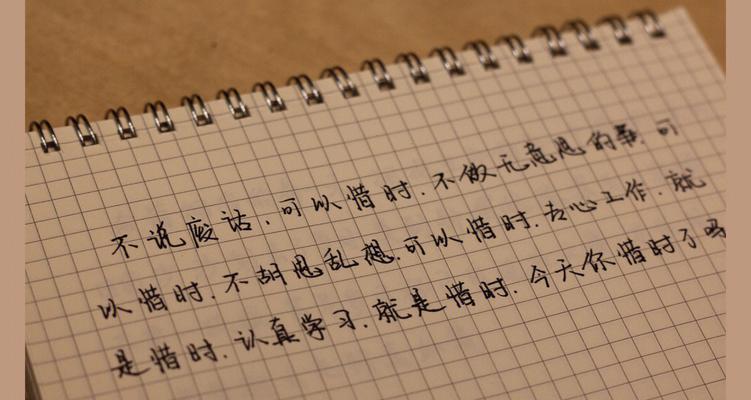 不说废话.可以惜时.不做无意思的事.可
以惜时.不胡思乱想.可以惜时.专心工作.就
是惜时.认真学习.就是惜时.今天你惜时了吗